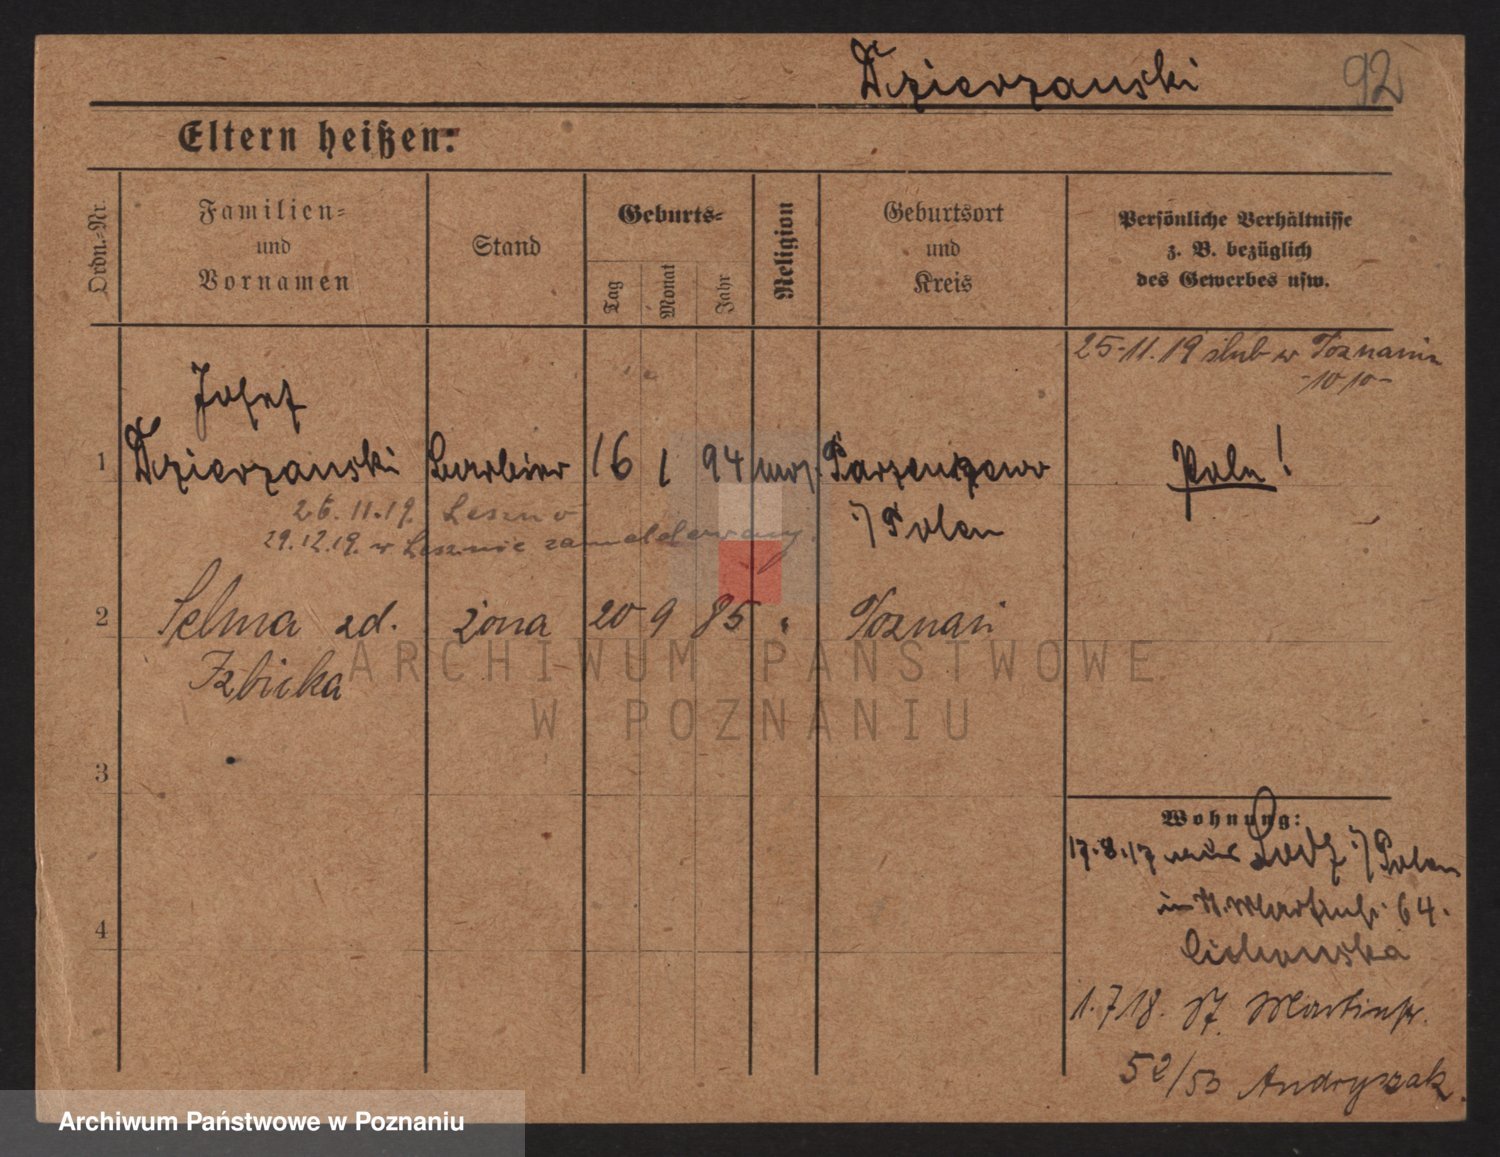 Dzierzanski 92
Eltern heißen:
Ordn.-Nr.
Familien-
und
Vornamen
Stand
Geburts-
Tag
Monat
Jahr
Religion
Geburtsort
und
Kreis
Persönliche Verhältnisse
z. B. bezüglich
des Gewerbes usw.
25-11.19 ślub w Poznaniu
Josef
1 Dzierzanski Barbier 16 1 94 mos. Parzenczewo
i/Polen
Pole!
26.11.19. Leszno
29.12.19. w Lesznie zameldowany.
2 Selma zd. żona 20 9 85 " Poznań
Izbicka
3
4
Wohnung:
17.8.17 aus Lodz i/Polen
in St. Martinstr. 64.
Cichowska
1.7.18. St. Martinstr.
52/53 Andryszak.
ARCHIWUM PAŃSTWOWE
W POZNANIU
Archiwum Państwowe w Poznaniu